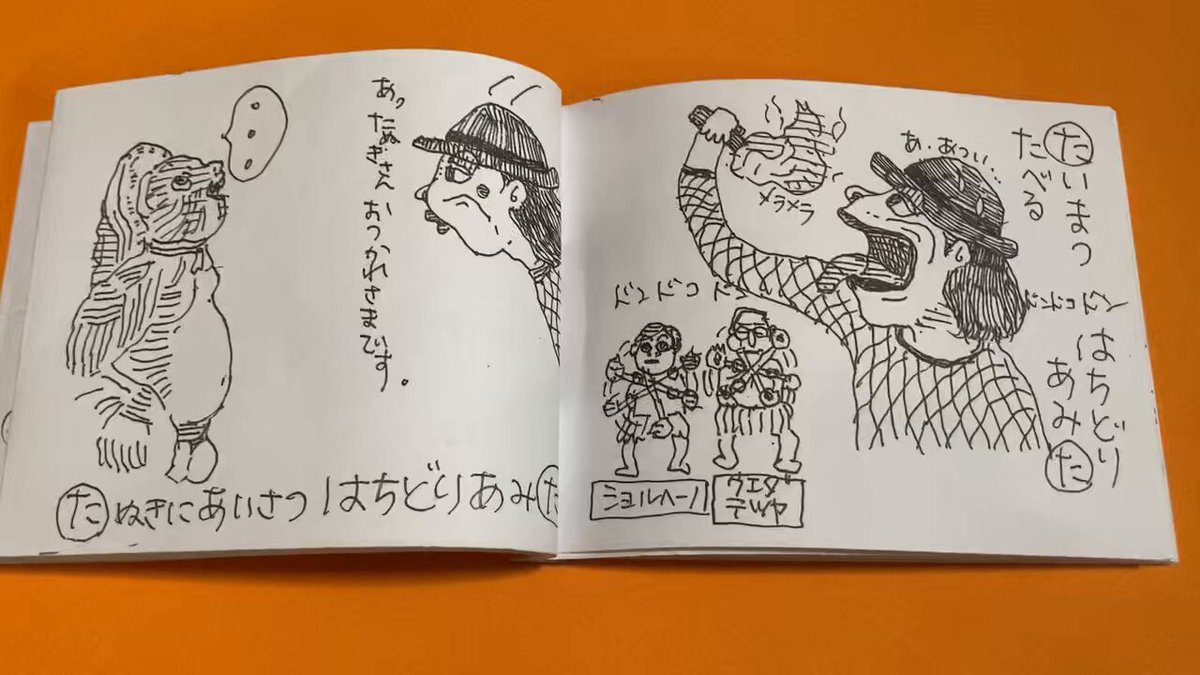 あっ たぬきさん おつかれさまです。
たぬきにあいさつ はちどりあみた
たいまつ
たべる
あ、あつい…
メラメラ
ドンドコドン
ドンドコドン
はちどり
あみた
ショルヘーノ
ウエダ
テツヤ